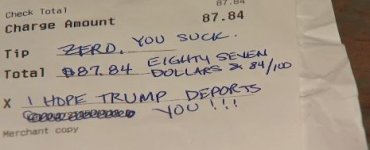 87.84
Check Total
Charge Amount 87.84
Tip ZERO, YOU SUCK.
Total $87.84 EIGHTY SEVEN
DOLLARS & 84/100
X I HOPE TRUMP DEPORTS
YOU!!!
Merchant copy